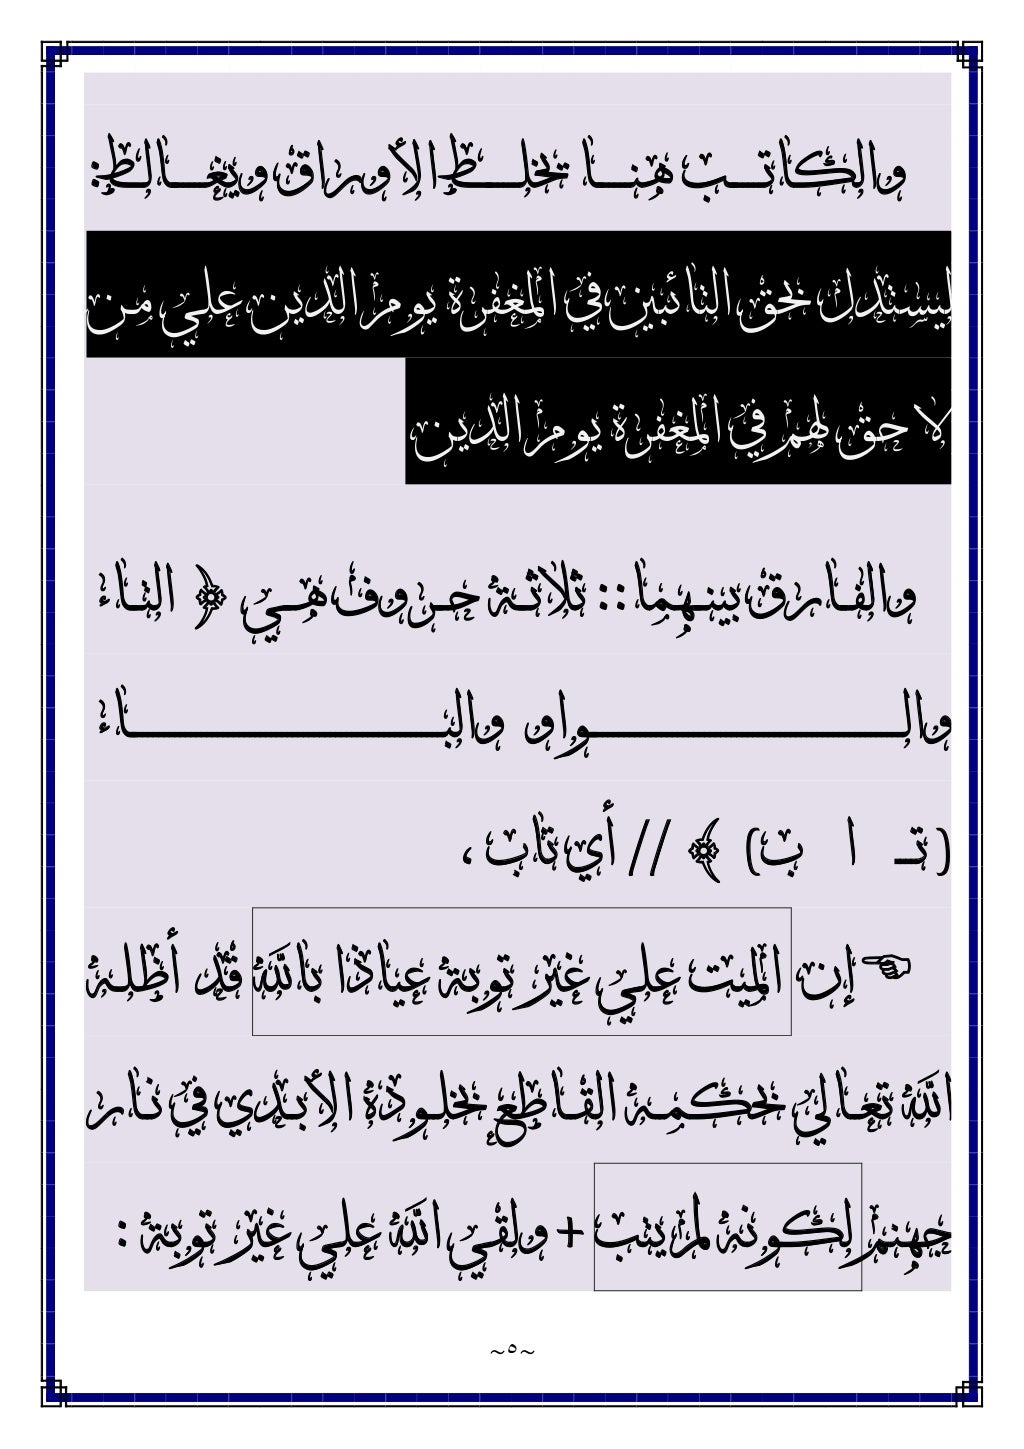 والكاتب هنا يخلط الأوراق ويغالط:
ليستدل بحق التائبين في المغفرة يوم الدين علي من
لا حق لهم في المغفرة يوم الدين
والفارق بينهما :: ثلاثة حروف هي ﴿ التاء
والواو والباء
(تـ ا ب) ﴾ // أي تاب ،
☜ إن الميت علي غير توبة عياذا بالله قد أظله
الله تعالي بحكمه القاطع بخلوده الأبدي في نار
جهنم لكونه لم يتب + ولقي الله علي غير توبة :
~٥~